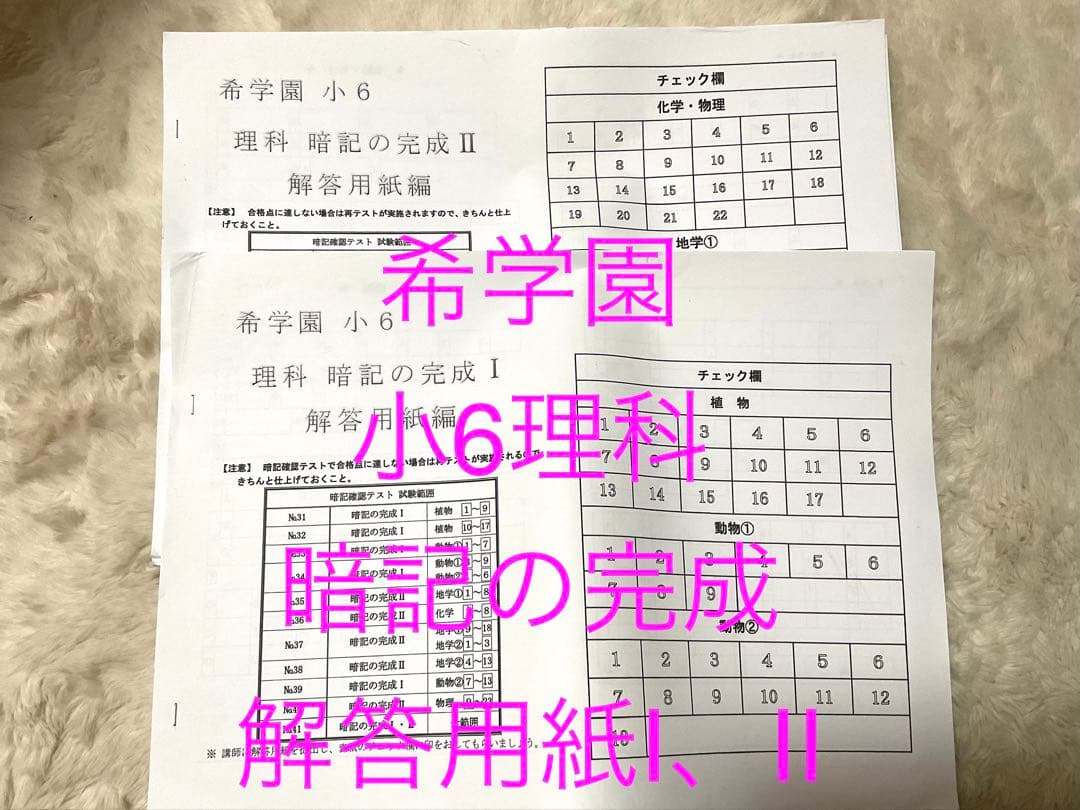 希学園 小6
理科 暗記の完成Ⅱ
解答用紙編
【注意】 合格点に達しない場合は再テストが実施されますので、きちんと仕上
げておくこと。
暗記確認テスト 試験範囲
チェック欄
化学・物理
1 2 3 4 5 6
7 8 9 10 11 12
13 14 15 16 17 18
19 20 21 22
地学①
希学園
小6理科
暗記の完成
解答用紙I、II
希学園 小6
理科 暗記の完成Ⅰ
解答用紙編
【注意】 暗記確認テストで合格点に達しない場合は再テストが実施されるので、
きちんと仕上げておくこと。
暗記確認テスト 試験範囲
№31 暗記の完成Ⅰ 植物 1～9
№32 暗記の完成Ⅰ 植物 10～17
暗記の完成Ⅰ 動物① 1～7
№34 暗記の完成Ⅰ 動物① ～9
動物② ～6
№35 暗記の完成Ⅱ 地学① 1～8
№36 暗記の完成Ⅱ 化学 ～8
№37 暗記の完成Ⅱ 地学① 9～18
地学② 1～3
№38 暗記の完成Ⅱ 地学② 4～13
№39 暗記の完成Ⅰ 動物② 7～13
暗記の完成Ⅱ 物理
№41 暗記の完成Ⅰ・Ⅱ 範囲
※ 講師に解答用紙を提出し、
印をおしてもらいましょう。
チェック欄
植物
1 2 3 4 5 6
7 8 9 10 11 12
13 14 15 16 17
動物①
1 2 3 4 5 6
7 8 9
動物②
1 2 3 4 5 6
7 8 9 10 11 12
13